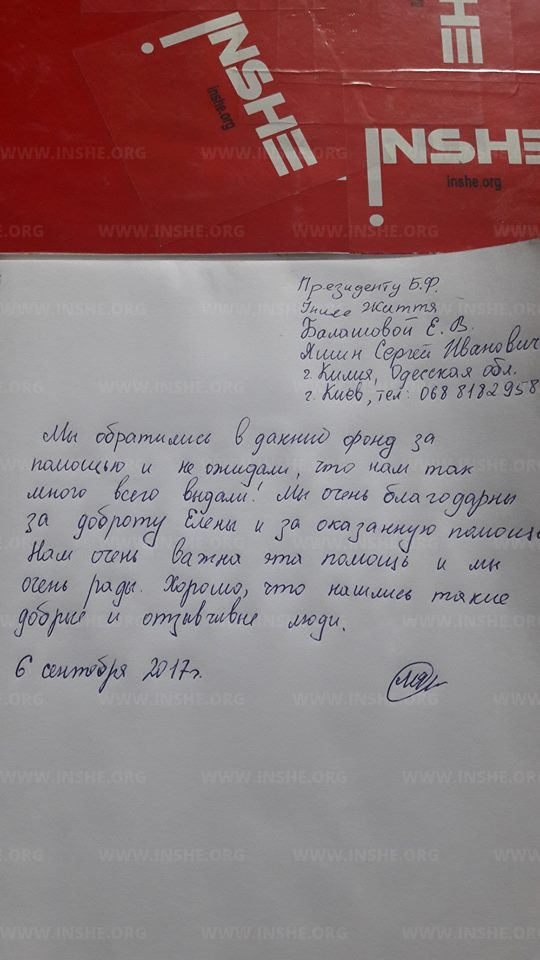 INSHE!
inshe.org
INSHE
INSHE!
inshe.org
WWW.INSHE.ORG
Президенту Б.Ф.
Інше Життя
Балашовой Е. В.
Яшин Сергей Иванович
г. Килия, Одесская обл.
г. Киев, тел: 068 8182958
Мы обратились в данний фонд за
помощью и не ожидали, что нам так
много всего видали! Мы очень благодарны
за доброту Елены и за оказанную помощь
Нам очень важна эта помощь и мы
очень рады. Хорошо, что нашлись такие
добрые и отзывчивые люди.
6 сентября 2017г.